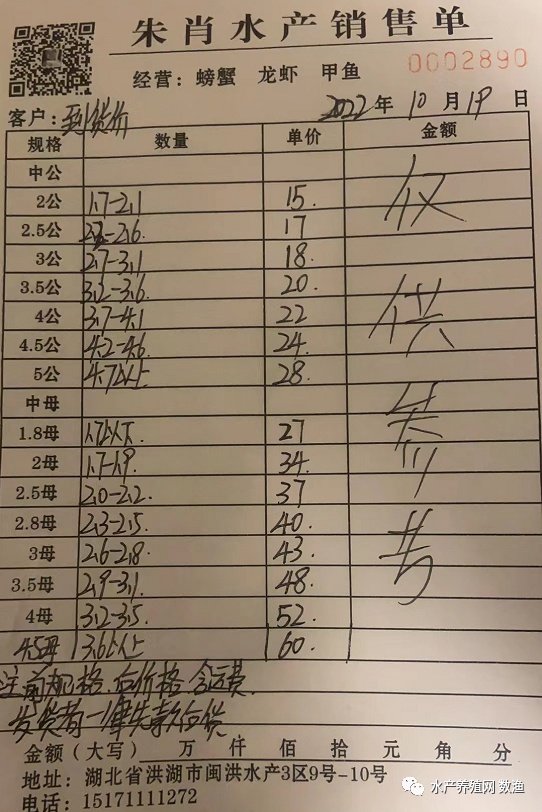 朱肖水产销售单
经营：螃蟹 龙虾 甲鱼
0002890
客户：到货价 2022年10月19日
规格 数量 单价 金额
中公
2公 1.7-2.1 15.
2.5公 2.2-2.6. 17
3公 2.7-3.1 18.
3.5公 3.2-3.6. 20.
4公 3.7-4.1 22
4.5公 4.2-4.6. 24.
5公 4.7以上 28.
中母
1.8母 1.7以下. 27
2母 1.7-1.9. 34.
2.5母 2.0-2.2. 37
2.8母 2.3-2.5. 40.
3母 2.6-2.8. 43.
3.5母 2.9-3.1. 48.
4母 3.2-3.5. 52.
4.5母 3.6以上 60.
仅供参考
注前规格.后价格.含运费.
发货者一律先款后货
金额（大写） 万 仟 佰 拾 元 角 分
地址：湖北省洪湖市闽洪水产3区9号-10号
电话：15171111272
水产养殖网 数渔